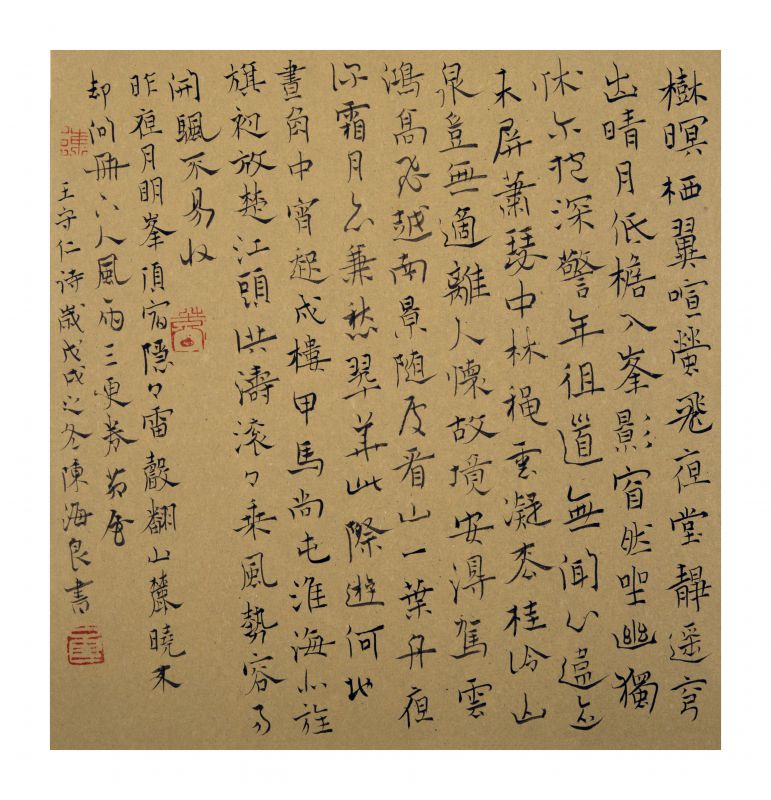 樹暝栖翼喧螢飛夜堂靜遥穹
出晴月低檐入峯影窅然坐幽獨
怵尔抱深警年徂道無聞心違迹
未屏蕭瑟中林穐雲凝松桂冷山
泉豈無適離人懷故境安得駕雲
鴻高飛越南景随處看山一葉舟夜
深霜月亦兼愁翠華此際遊何地
畫角中宵起戍樓甲馬尚屯淮海北旌
旗初放楚江頭洪濤滚々乘風勢容易
開颿不易收
昨夜月明峯頂宿隱々雷聲翻山麓曉来
却问山下人風雨三更卷茆屋
王守仁诗歲戊戌之冬陳海良書